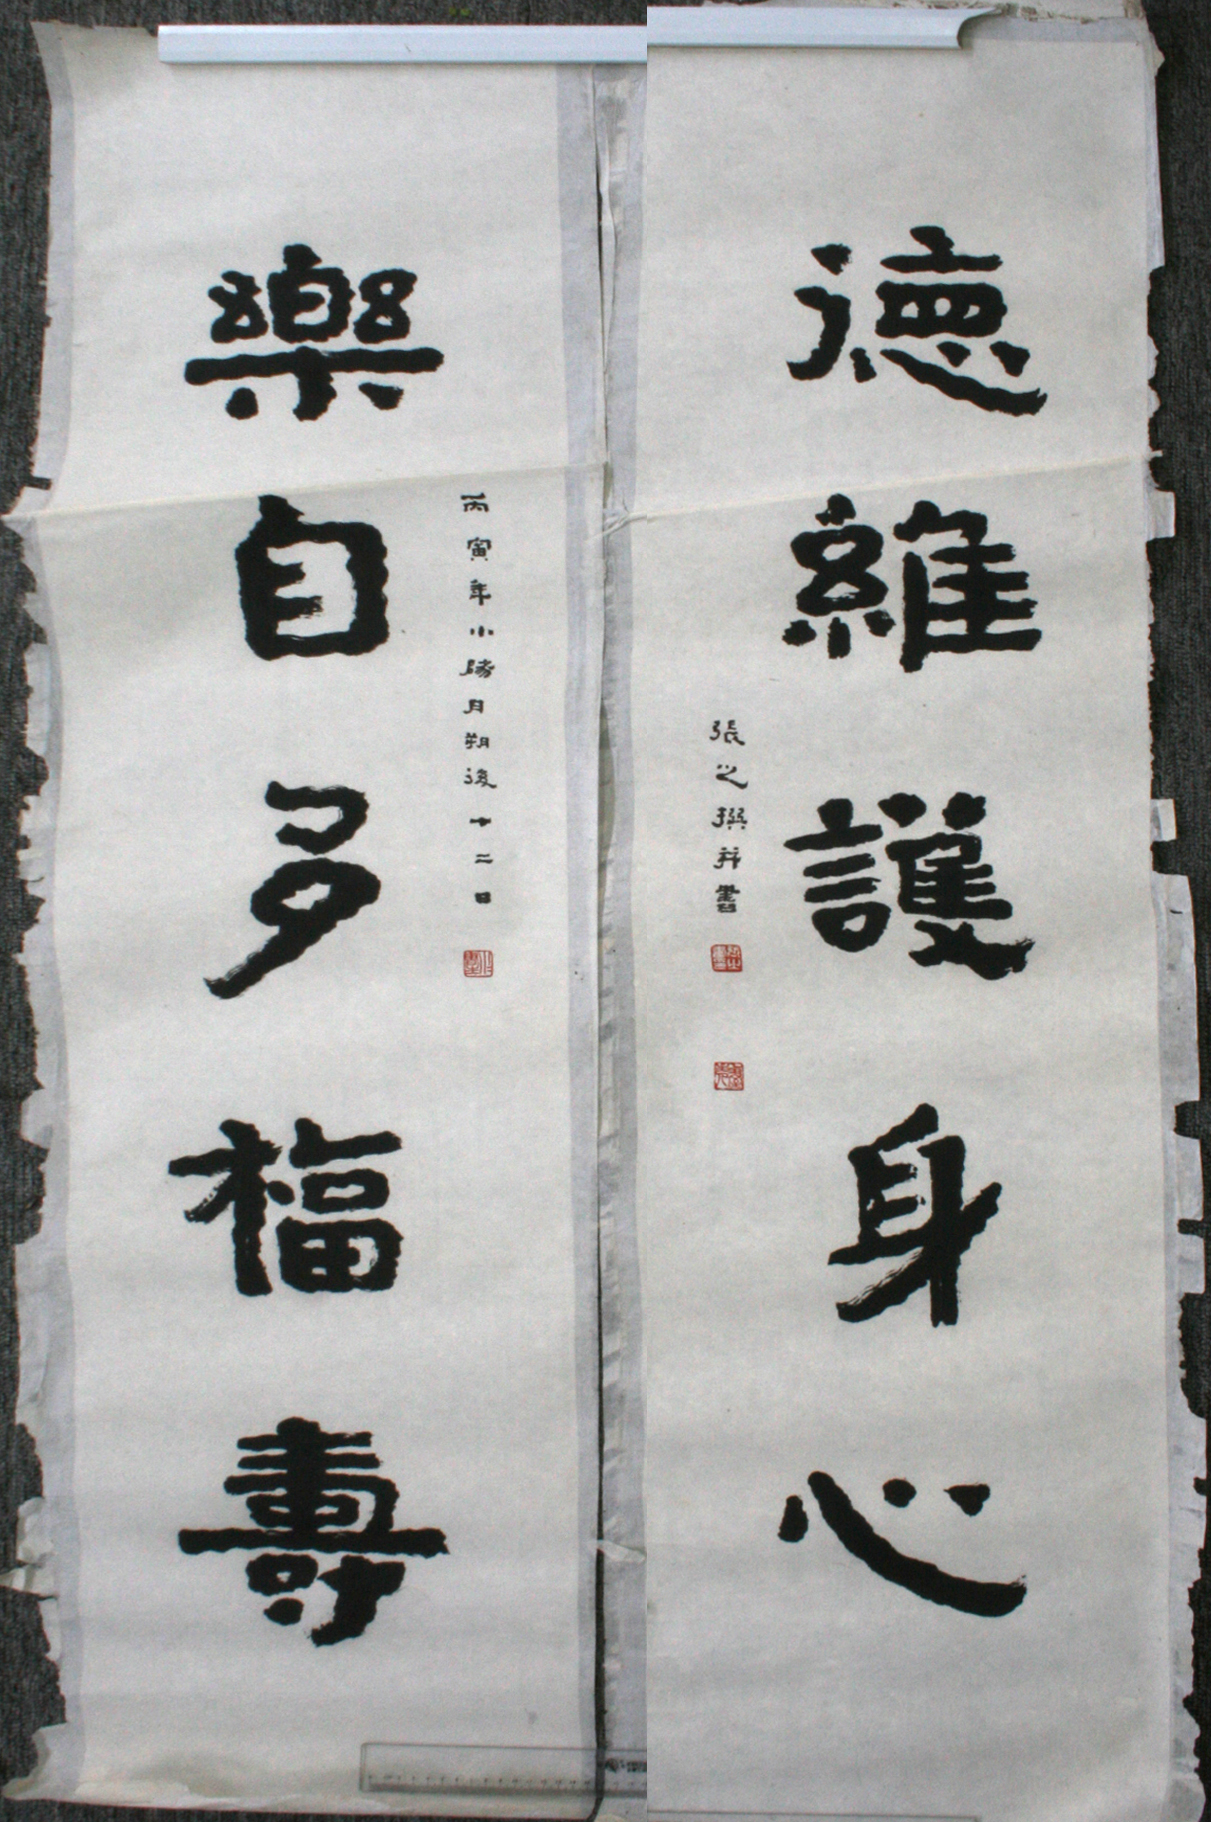 樂自多福壽
丙寅年小陽月朔後十二日
德維護身心
張之撰并書